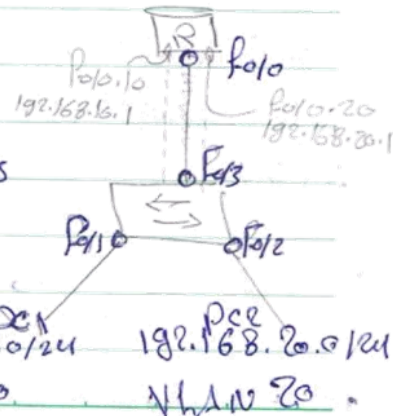 R
Fo/0
Fo/0.10
192.168.10.1
Fo/0.20
192.168.20.1
Fo/3
Fo/1
Fo/2
PC1
PC2
0/24
192.168.20.0/24
VLAN 20